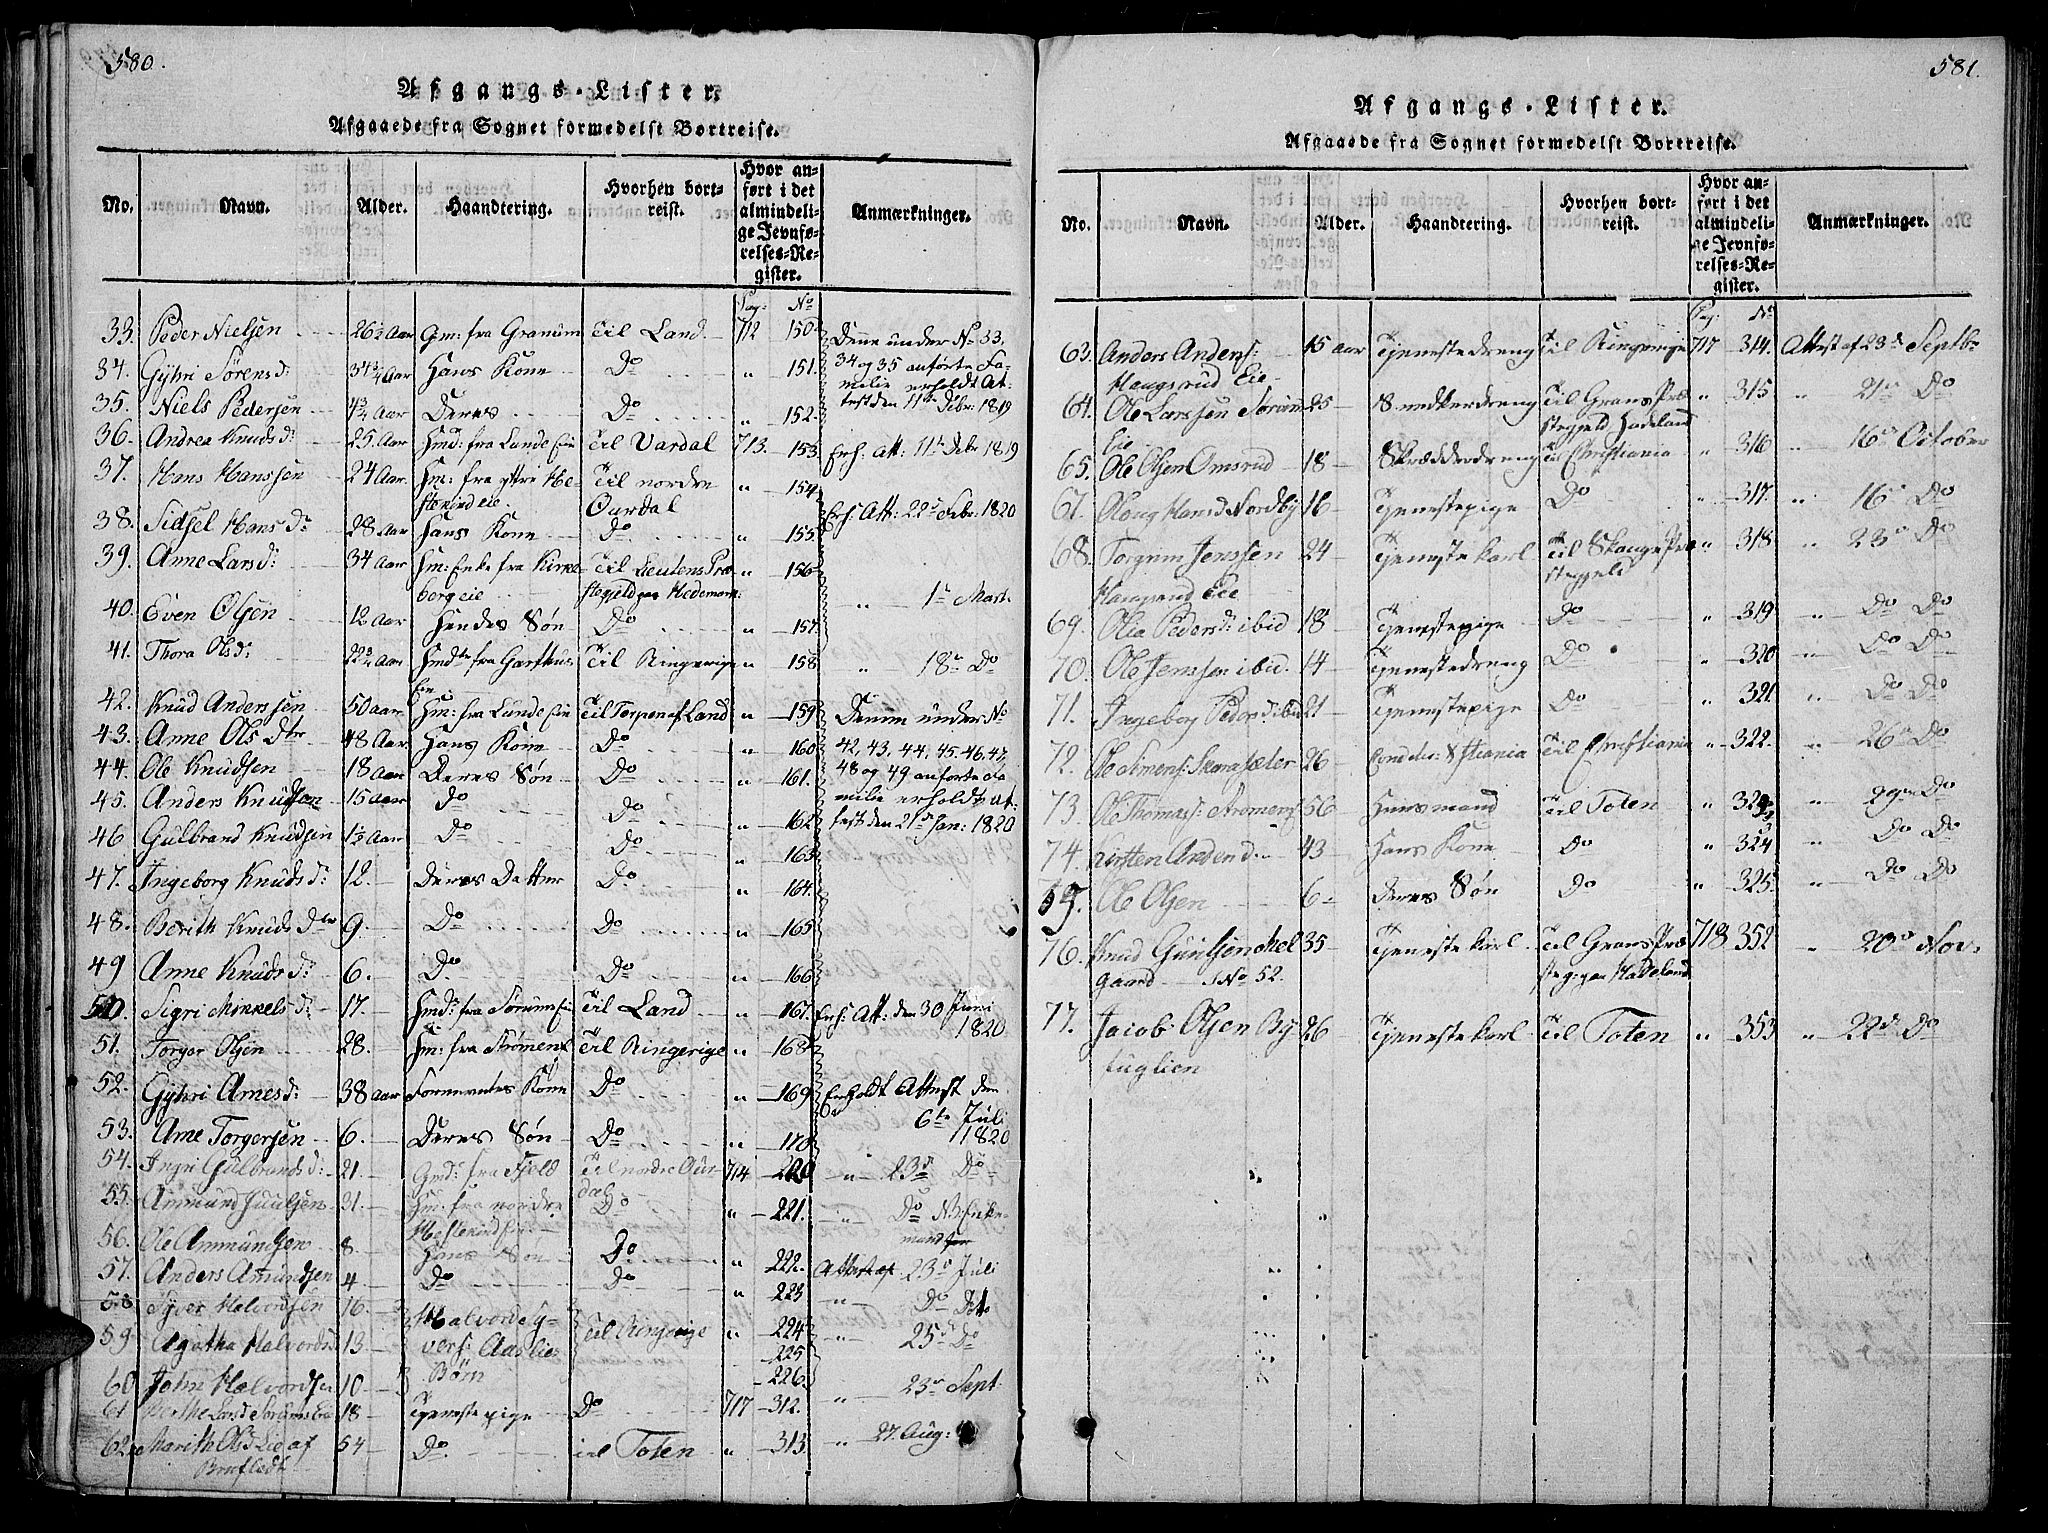 580.
Afgangs-Lister.
Afgaaede fra Sognet formedelst Bortreise.
No. Navn. Alder. Haandtering. Hvorhen bortreist. Hvor anført i det almindelige Jevnførelses-Register. Anmærkninger.
Pag: No
33. Peder Nielsen 26½ Aar Gm: fra Granum Til Land 712 150 Denne under No 33,
34. Gyhri Sørens d: 34¾ Aar Hans Kone Do " 151. 34 og 35 anførte Fa-
35. Niels Pedersen ¾ Aar Deres Do " 152. milie erholdt At-
test den 11te Febr: 1819
36. Andrea Knuds d: 25. Aar Hmd: fra Lunde Eie Til Vardal 713. 153 Erh. Att: 11te Febr 1819
37. Hans Hanssen 24 Aar Hm: fra yttre He- Til nordre " 154
stekind eie Ourdal Erh: Att: 22d Febr: 1820
38. Sidsel Hans d: 28 Aar Hans Kone Do " 155
39. Anne Lars d: 34 Aar Hm: Enke fra Kirke- Til Leutens Præ- " 156
berg eie stegield paa Hedemark: " 1te Mart.
40. Even Olsen 12 Aar Hendes Søn Do " 157.
41. Thora Ols d: 22¾ Aar Hmdtr fra Garthus Til Ringerige " 158 " 18de Do
Eie
42. Knud Anderssen 50 Aar Hm: fra Lunde Eie Til Torpen af Land " 159 Denne under No
43. Anne Ols Dtr 48 Aar Hans Kone Do " 160 42, 43, 44, 45. 46, 47,
44. Ole Knudsen 18 Aar Deres Søn Do " 161. 48 og 49 anførte Fa
45. Anders Knudsen 15 Aar Do Do " 162 milie erholdt At-
test den 21de Jan: 1820
46 Gulbrand Knudsen 1½ Aar Do Do " 163
47. Ingeborg Knuds d: 12. Deres Datter Do " 164.
48. Berith Knuds Dtr 9. Do Do " 165
49 Anne Knuds d: 6. Do Do " 166
50. Sigri Mikkels d: 17. Hmd: fra Sørum Eie Til Land " 167. Erh: Att: den 30 Juni
1820
51. Torger Olsen 28. Hm: fra Strømens Til Ringerige " 168
52. Gyhri Arnes d: 38 Aar Formentes Kone Do " 169 Erholdt Attest den
6te Juli
1820
53. Arne Torgersen 6. Deres Søn Do " 170
54. Ingri Gulbrands d: 21. Gmd: fra Fjeld Til nordre Our 714 220 " 23d Do
dal
55. Ammund Juulsen 31. Hm: fra nordre Do " 221. " Do NB: Enke-
Hestekind Eie mand
56. Ole Ammundsen 8 Hans Søn Do " 222. Attest af 23d Juli
57. Anders Amundsen 4 Do Do " 223 " Do Dito
58 Syver Halvorsen 16. Halvord Sy- " 224 " 25d Do
59 Agatha Halvordsd 13 vers: Aas Eies Til Ringerige 225
60 John Halvordsen 10 Børn 226. " 23d Sept.
61 Berthe Larsd Sørums Eie 18 Tjenestepige Do 717 312.
62 Marith Olsd Lie af 54 Do til Toten " 313 " 27. Aug:
Brufledt
581.
Afgangs-Lister.
Afgaaede fra Sognet formedelst Bortreise.
No. Navn. Alder. Haandtering. Hvorhen bortreist. Hvor anført i det almindelige Jevnførelses-Register. Anmærkninger.
Pag: No
63. Anders Anders: 15 aar Tjenestedreng Til Ringerige 717 314. Attest af 23d Septbr
Haugsrud Eie
64. Ole Larssen Sørum 25 Snedkerdreng Til Grans Præ " 315 " 21de Do
Eie stegjeld Hadeland
65. Ole Olsen Omsrud 18 Skrædderdreng Til Christiania " 316 " 16de October
67. Oloug Hansd Nordby 16 Tjenestepige Do " 317. " 16de Do
68. Torgrim Jenssen 24 Tjenestekarl Til Skauge Præ " 318 " 23d Do
Haugsrud Eie stegjeld
69. Olia Peders d: ibid 18 Tjenestepige Do " 319 " Do Do
70. Ole Jenssen ibid. 14 Tjenestedreng Do " 320 " Do Do
71. Ingeborg Peders d ibid 21 Tjenestepige Do " 321 " Do Do
72. Ole Simens: Skaraseter 26 Til Christiania " 322. " 26de Do
73. Ole Thomass: Strømens 56 Huusmand Til Toten " 323 " 29de Do
74. Kirsten Anders d: 43 Hans Kone Do " 324 " Do Do
75. Ole Olsen 6 Deres Søn Do " 325 " Do Do
76. Knud Guulsen Mel 35 Tjenestekarl Til Grans Præ 718 352 " 20de Nov.
gaard No 52. stegj. paa Hadeland
77. Jacob Olsen By 26 Tjenestekarl Til Toten " 353 " 22d Do
fuglien